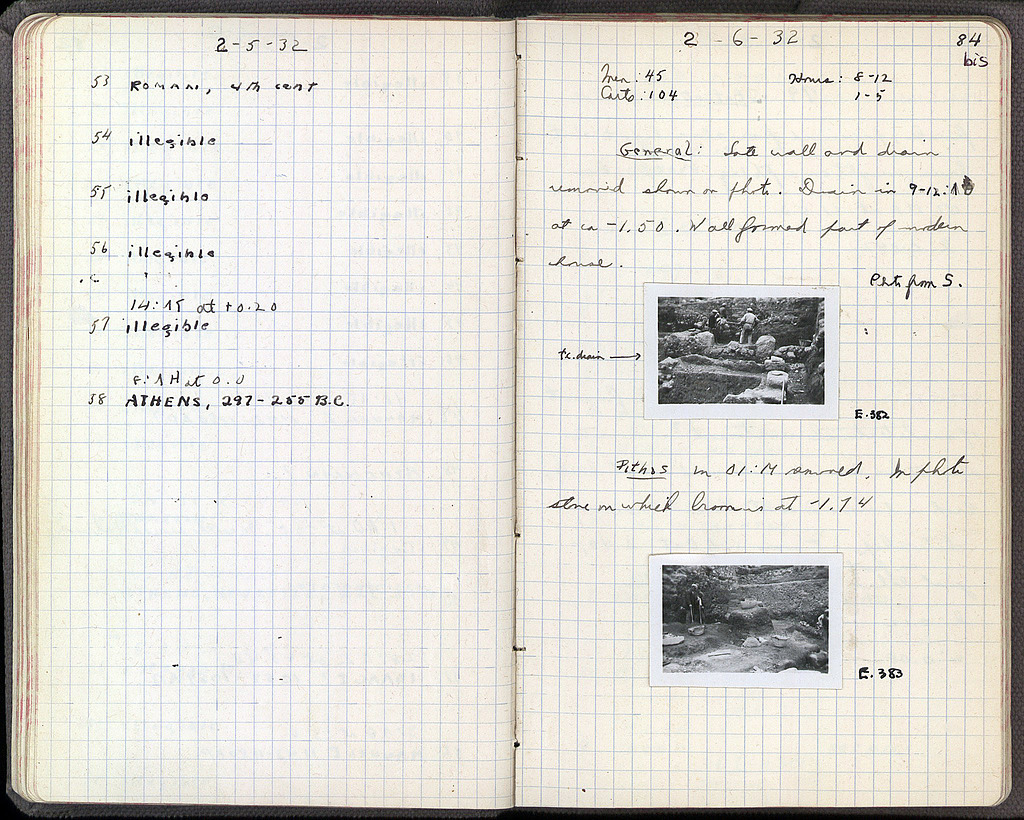 2-5-32
53 ROMAN, 4th cent
54 illegible
55 illegible
56 illegible
14:15 at +0.20
57 illegible
at 0.0
58 ATHENS, 297-255 B.C.
2-6-32
84
bis
Men: 45
Hours: 8-12
Carts: 104
1-5
General: Late wall and drain
removed shown on photo. Drain in 9-12:
at ca -1.50. Wall formed part of modern
house.
Photo from S.
drain →
E.382
Pithos in removed. In photo
stone on which broom is at -1.74
E.383